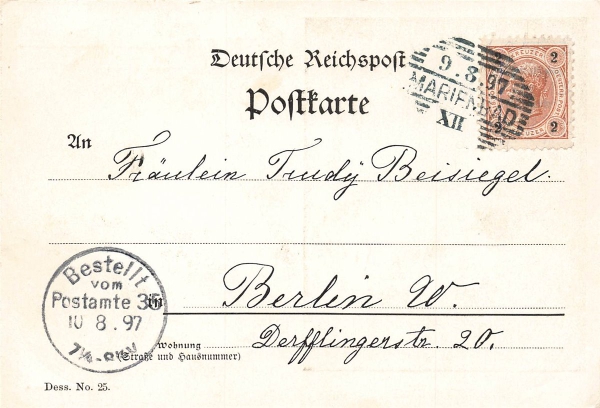 Deutsche Reichspost
Postkarte
9.8.97
MARIENBAD
XII
2 2
KREUZER
2 2
An
Fräulein Trudy Beisiegel.
Bestellt
vom
Postamte 35
10 8.97
in Berlin W.
Wohnung
(Straße und Hausnummer)
Derfflingerstr. 20.
Dess. No. 25.